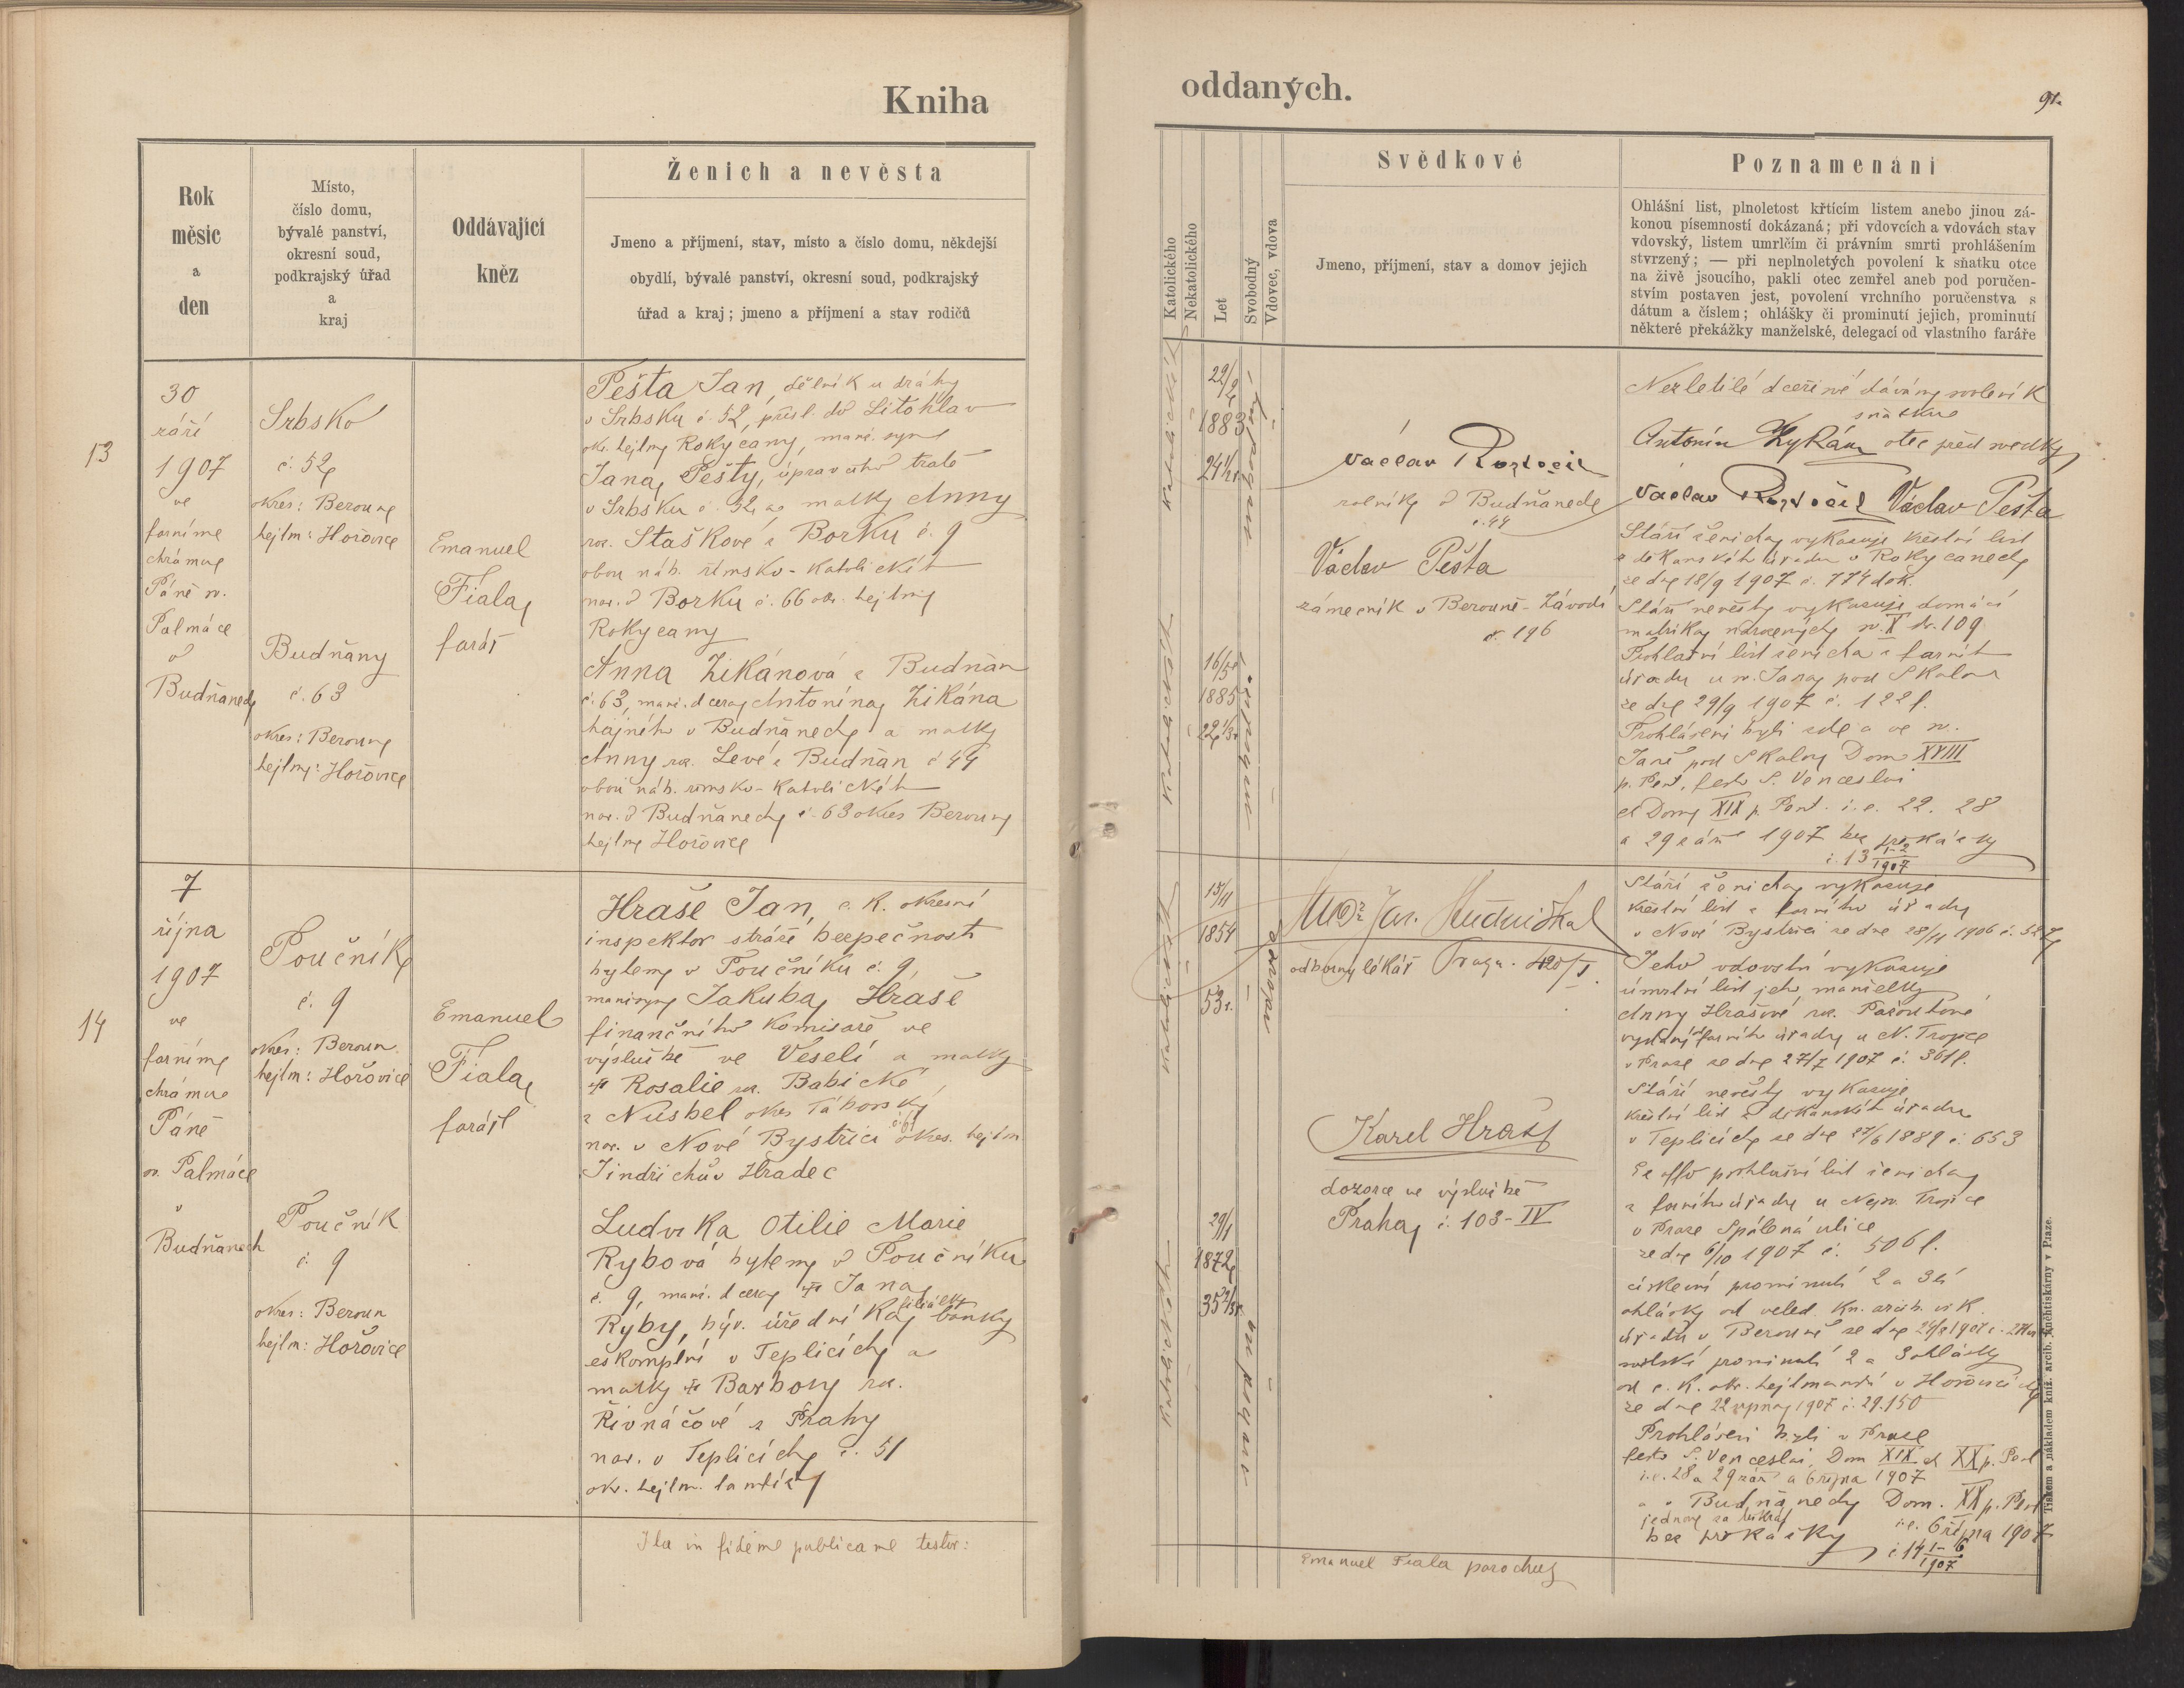 Kniha
Rok
měsíc
a
den
Místo,
číslo domu,
bývalé panství,
okresní soud,
podkrajský úřad
a
kraj
Oddávající
kněz
Ženich a nevěsta
Jmeno a příjmení, stav, místo a číslo domu, někdejší
obydlí, bývalé panství, okresní soud, podkrajský
úřad a kraj; jmeno a příjmení a stav rodičů
13
30
září
1907
ve
farním
chrámu
Páně sv.
Palmáce
v
Budňanech
Srbsko
č. 52
okres: Beroun
hejtm: Hořovice
Budňany
č. 63
okres: Beroun
hejtm: Hořovice
Emanuel
Fiala,
farář
Pešta Jan, dělník u dráhy
v Srbsku č. 52, přísl. do Litohlav
okr. hejtm Rokycany, manž. syn
Jana Pešty, úpravčího tratě
v Srbsku č. 52 a matky Anny
roz. Staškové z Borku č. 9
obou náb. římsko-katolického
nar. v Borku č. 66 okr. hejtm
Rokycany
Anna Zikánová z Budňan
č. 63, manž. dcera Antonína Zikána
hajného v Budňanech a matky
Anny roz. Levé z Budňan č 44
obou náb. římsko-katolického
nar. v Budňanech č. 63 okres Beroun
hejtm Hořovice
14
7
října
1907
ve
farním
chrámu
Páně
sv. Palmáce
v
Budňanech
Poučník
č. 9
okres: Beroun
hejtm: Hořovice
Poučník
č. 9
okres: Beroun
hejtm: Hořovice
Emanuel
Fiala,
farář
Hraše Jan, c. k. okresní
inspektor stráže bezpečnosti
bytem v Poučníku č. 9,
manž. syn Jakuba Hraše
finančního komisaře ve
výslužbě ve Veselí a matky
Rosalie roz. Babické
z Nusbel okres Táborský
nar. v Nové Bystřici č. 61 okres. hejtm
Jindřichův Hradec
Ludvika Otilie Marie
Rybová bytem v Poučníku
č. 9, manž. dcera Jana
Ryby, býv. úředníka filiálky banky
eskomptní v Teplicích a
matky Barbory roz.
Řivnáčové z Prahy
nar. v Teplicích č. 51
okr. hejtm. tamtéž
Ita in fidem publicam testor:
oddaných.
91.
Katolického
Nekatolického
Let
Svobodný
Vdovec, vdova
Svědkové
Jmeno, příjmení, stav a domov jejich
Poznamenání
Ohlášní list, plnoletost křtícím listem anebo jinou zá-
konou písemností dokázaná; při vdovcích a vdovách stav
vdovský, listem umrlčím či právním smrti prohlášením
stvrzený; — při neplnoletých povolení k sňatku otce
na živě jsoucího, pakli otec zemřel aneb pod poručen-
stvím postaven jest, povolení vrchního poručenstva s
dátum a číslem; ohlášky či prominutí jejich, prominutí
některé překážky manželské, delegací od vlastního faráře
katolického
1883
24½
svobodný
katolického
1885
Václav Roztočil
rolník v Budňanech
č. 44
Václav Pešta
zámečník v Berouně-Závodí
č. 196
Nezletilé dceři mé dávám svolení k
sňatku
Antonín Zykán otec před svědky
Václav Roztočil Václav Pešta
Stáří ženicha vykazuje křestní list
z děkanského úřadu v Rokycanech
ze dne 18/9 1907 č. 774 dok.
Stáří nevěsty vykazuje domácí
matrika narozených sv. X str. 109
Prohlašní list ženicha z farního
úřadu u sv. Jana pod Skalou
ze dne 29/9 1907 č. 122 f.
Prohlášeni byli zde a ve sv.
Janě pod Skalou Dom XVIII
p. Pent, festo S. Venceslai
et Dom XIX p. Pent. i. e. 22. 28
a 29 září 1907 bez překážky
č. 13 1-2/1907
katolického
15/11
1854
53 r.
vdovec
katolického
29/1
1872
MUDr Jar. Hudnička
odborný lékař Praga. 420/I.
Karel Hraše
dozorce ve výslužbě
Praha č. 103-IV
Stáří ženicha vykazuje
křestní list z farního úřadu
v Nové Bystřici ze dne 28/11 1906 č. 527
Jeho vdovství vykazuje
úmrtní list jeho manželky
Anny Hrašové roz. Pažoutové
vydaný farního úřadu u N. Trojice
v Praze ze dne 27/7 1907 č. 361 f.
Stáří nevěsty vykazuje
křestní list z děkanského úřadu
v Teplicích ze dne 27/6 1889 č. 653
Ex offo prohlašní list ženicha
z farního úřadu u Nejsv. Trojice
v Praze Spálená ulice
ze dne 6/10 1907 č. 506 f.
církevní prominutí 2 a 3tí
ohlášky od veled. kn. arcib. vik.
úřadu v Berouně ze dne
světské prominutí 2 a 3 ohlášky
od c. k. okr. hejtmanství v Hořovicích
ze dne 22 srpna 1907 č. 29.150
Prohlášeni byli v Praze
festo S. Venceslai, Dom XIX et XX p. Pent
i. e. 28 a 29 září a 6 října 1907
a v Budňanech Dom. XX p. Pent
jednou za třikrát i. e. 6 října 1907
bez překážky č. 14 1-6/1907
Emanuel Fiala parochus
Tiskem a nákladem kníž. arcib. knihtiskárny v Praze.